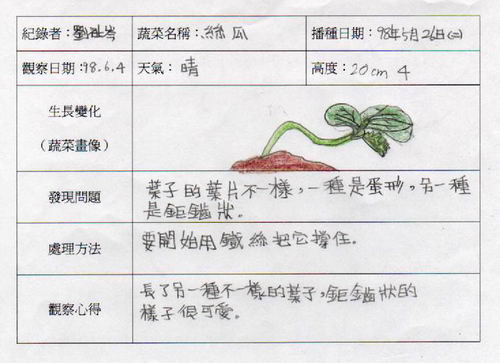 紀錄者：劉祉岑 蔬菜名稱：絲瓜 播種日期：98年5月26日(二)
觀察日期：98.6.4 天氣：晴 高度：20cm 4
生長變化
（蔬菜畫像）
發現問題 葉子的葉片不一樣，一種是蛋形，另一種
是鉅齒狀。
處理方法 要開始用鐵絲把它撐住。
觀察心得 長了另一種不一樣的葉子，鉅齒狀的
樣子很可愛。